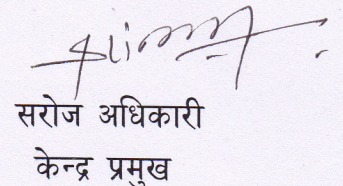 सरोज अधिकारी
केन्द्र प्रमुख